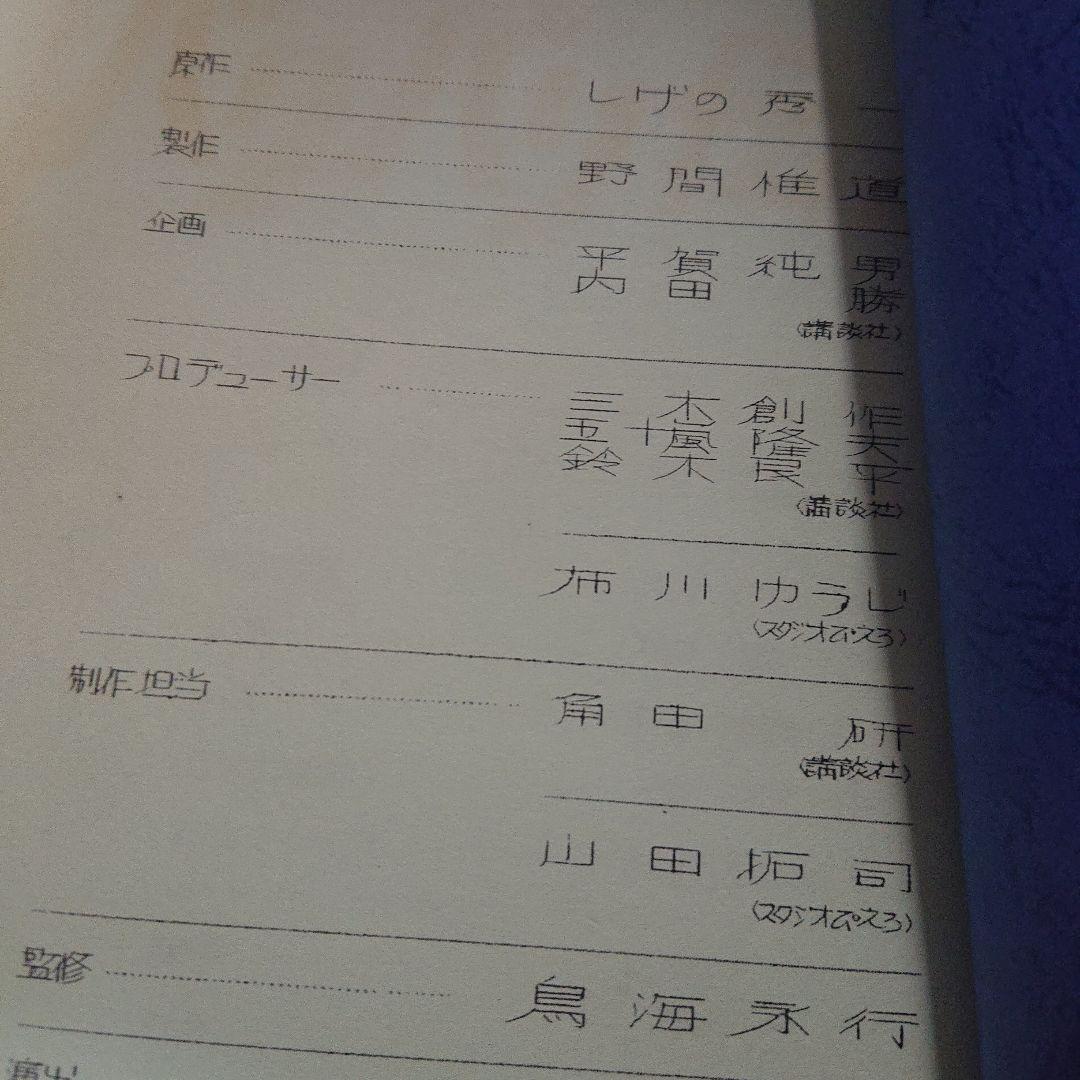 原作 しげの秀一
製作 野間惟道
企画 平賀純男
内田勝
(講談社)
プロデューサー 三木創作
五十嵐隆夫
鈴木良平
(講談社)
布川ゆうじ
(スタジオぴえろ)
制作担当 角田研
(講談社)
山田拓司
(スタジオぴえろ)
監修 鳥海永行
演出